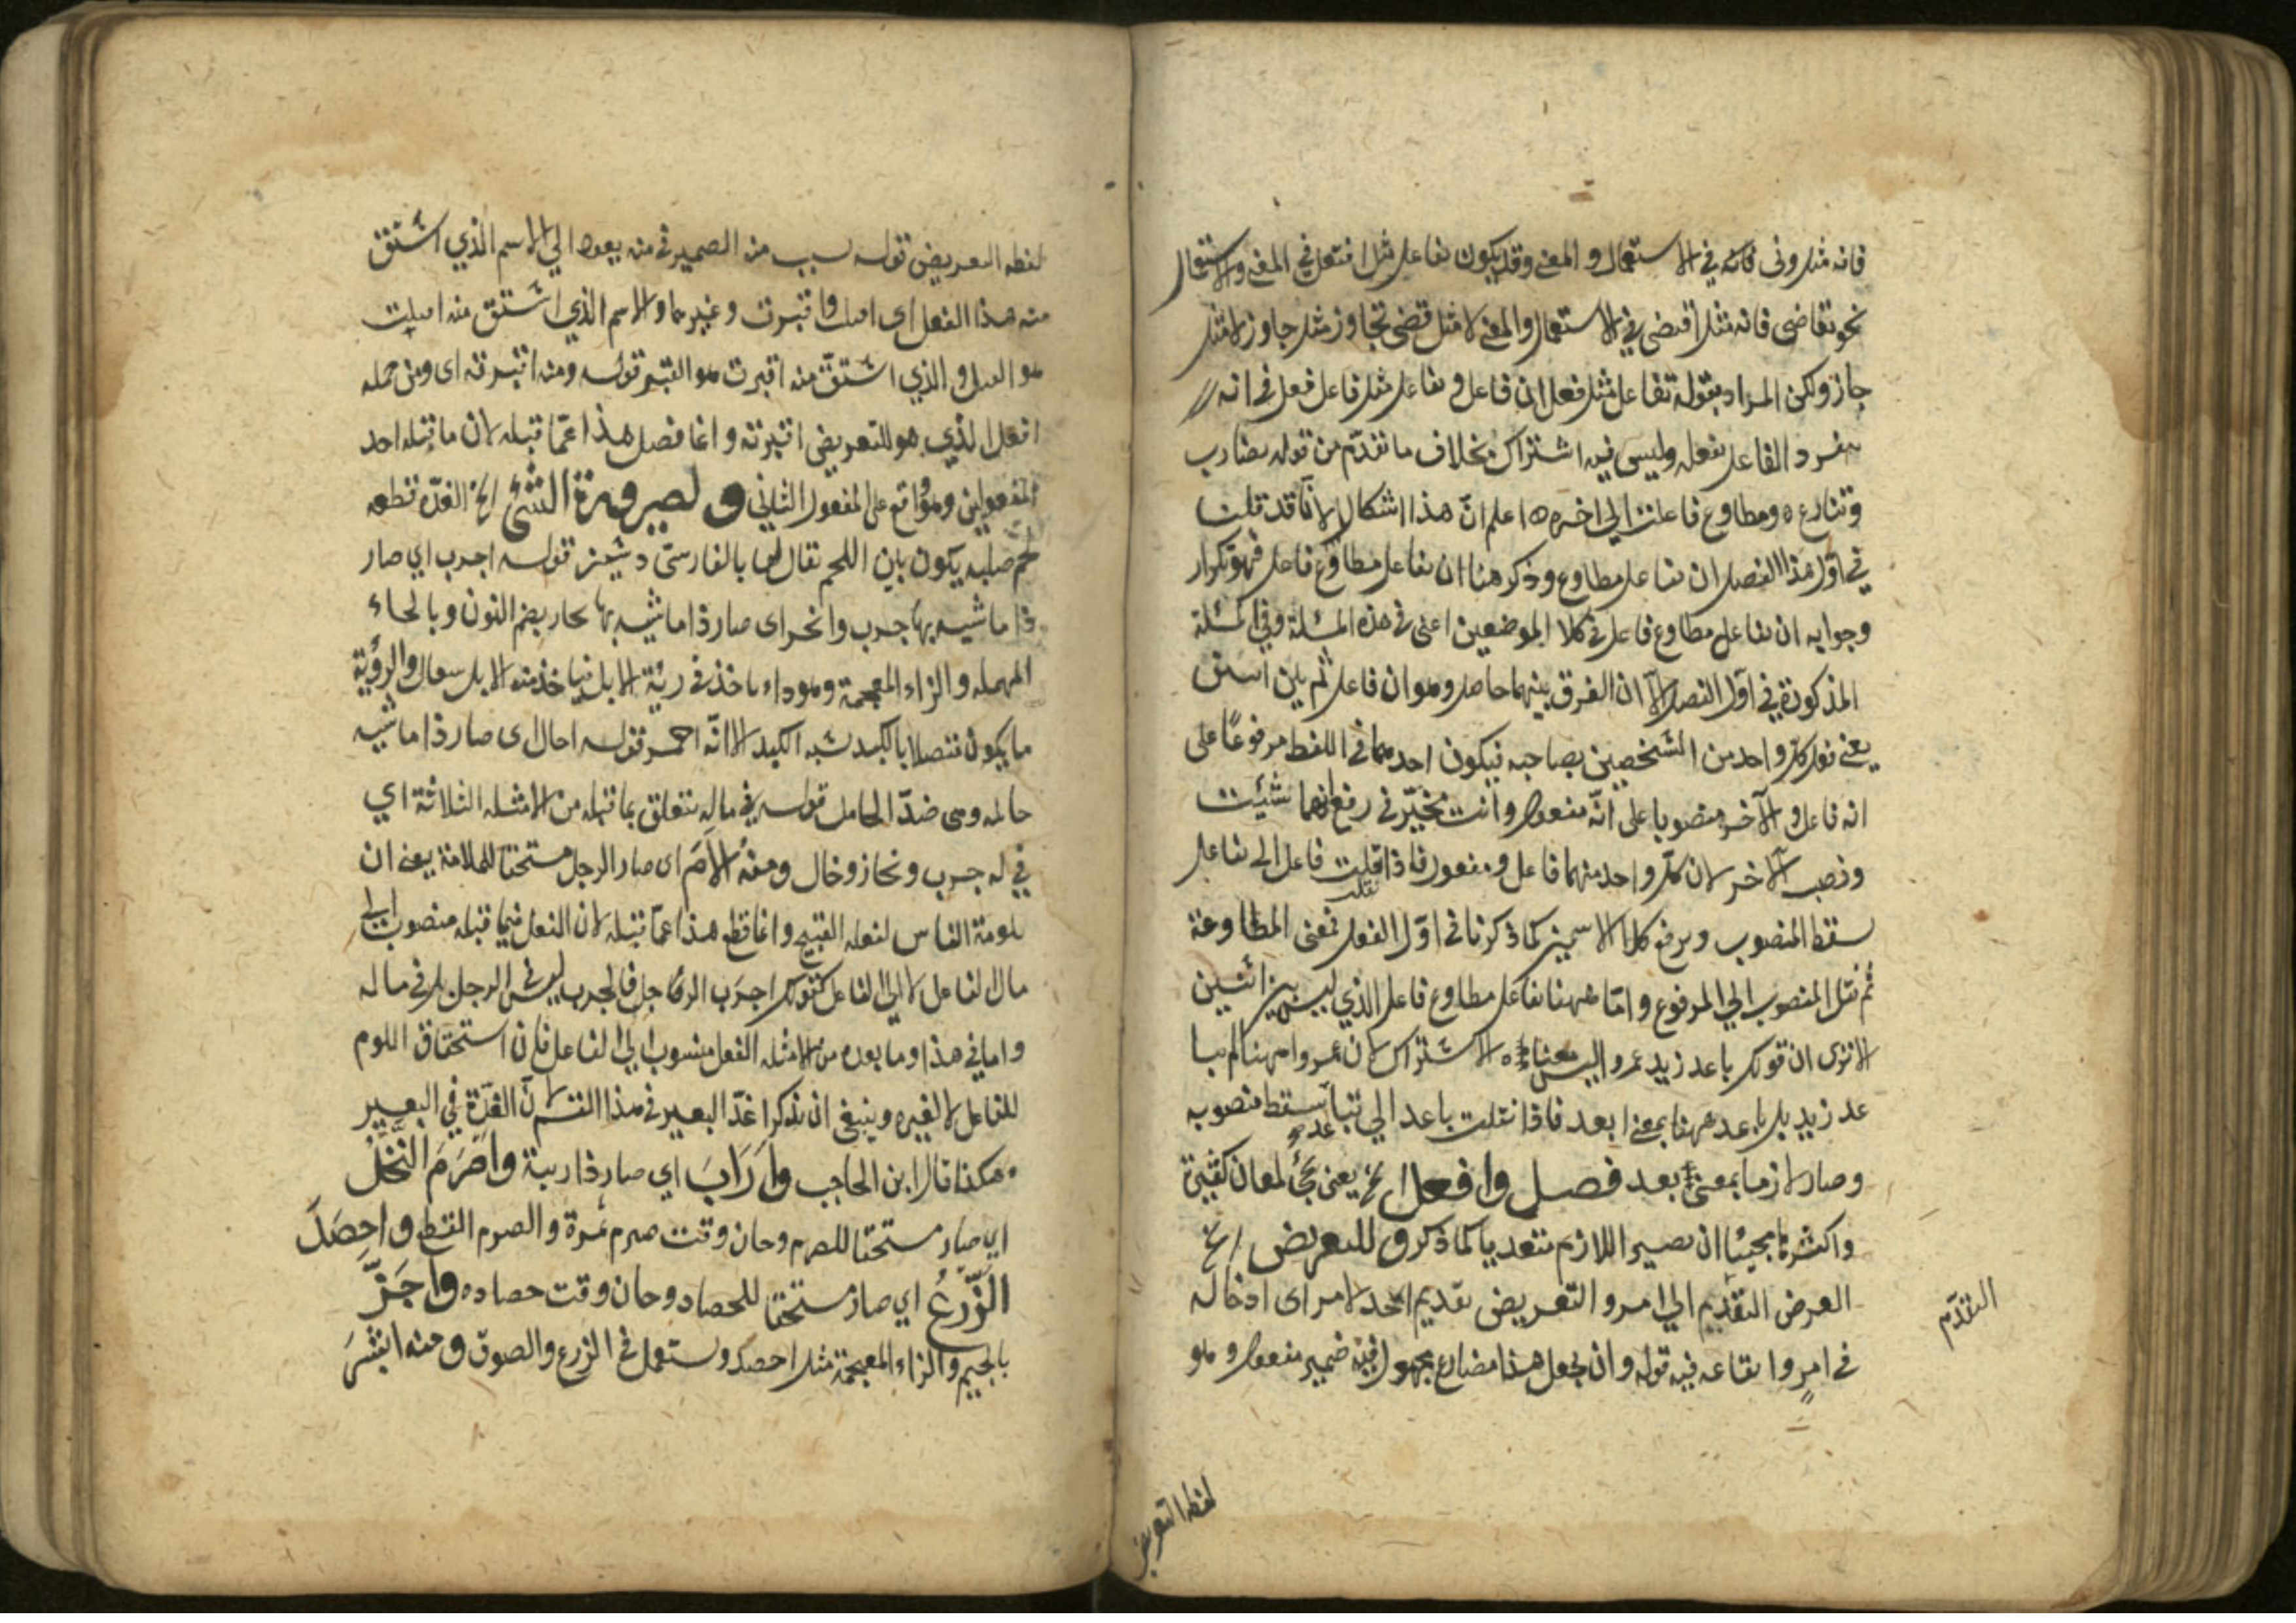 فانه مثل ونى فانه في الاستعمال والمعنى وقد يكون تفاعل مثل افتعل في المعنى والاستعمال
نحو تقاضى فانه مثل اقتضى في الاستعمال والمعنى لا مثل قضى تجاوز مثل جاوز لا مثل
جاز ولكن المراد بقوله تفاعل مثل فعل ان فاعل و تفاعل مثل فاعل فعل في انه
ينفرد الفاعل بفعله وليس فيه اشتراك بخلاف ما تقدّم من قوله تضارب
وتنازع ه ومطاوع فاعلت الي اخره ه اعلم انّ هذا اشكال لانّا قد قلت
في اوّل هذا الفصل ان تفاعل مطاوع وذكر هنا ان تفاعل مطاوع فاعل فهو تكرار
وجوابه ان تفاعل مطاوع فاعل في كلا الموضعين اعنى في هذه المسئلة وفي المسئلة
المذكورة في اوّل الفصل الّا ان الفرق بينهما حاصل وهو ان فاعل ثم بين اسمين
يعني فعل كل واحد من الشخصين بصاحبه فيكون احدهما في اللفظ مرفوعًا على
انه فاعل والآخر منصوبا على انّه مفعول وانت مخيّر في رفع ايهما شئت
ونصب الآخر لان كلّ واحد منهما فاعل ومفعول فاذا نقلت فاعل الى تفاعل
سقط المنصوب ويرفع كلا الاسمين كما ذكرنا في اوّل الفعل فمعنى المطاوعة
ثم نقل المنصوب الي المرفوع وامّا ههنا تفاعل مطاوع فاعل الذي ليس بين اثنين
الا ترى ان قولك باعد زيد عمروا ليس معناه الاشتراك لان عمروا ههنا لم يبا
عد زيد بل باعد ههنا بمعنى ابعد فاذا نقلت باعد الي تباعد سقط منصوبه
وصار لازما بمعنى بعد فصل وافعل الخ يعنى يجئ لمعان كثيرة
واكثرها مجيئا ان يصير اللازم متعديا كما ذكر و للتعريض الخ
العرض التقديم الي امر والتعريض تقديم احد لامر اى ادخاله
التقدّم
في امر وايقاعه فيه قوله وان يجعل هذا مضارع مجهول فيه ضمير مفعول وهو
لفظ التعريض
لفظ التعريض قوله سبب منه الضمير في منه يعود الي الاسم الذي اشتق
منه هذا الفعل اى ابعت واقبرت وغيرهما والاسم الذي اشتق منه ابعت
هو البيع والذي اشتقّ منه اقبرت هو القبر قوله ومنه اقبرته اى ومن جمله
افعل الذي هو للتعريض اقبرته وانما فصل هذا عمّا قبله لان ما قبله احد
المفعولين وهو واقع على المفعول الثاني و لصيرورة الشئ الخ الغدّة قطعه
لحم صلبه يكون بين اللحم يقال لها بالفارسىّ دشبز قوله اجرب اي صار
ذا ماشيه بها جرب وانحز اى صار ذا ماشيه بها نحاز بضم النون وبالحاء
المهمله والزاء المعجمة وهو داء ياخذ في ريّة الابل فياخذ منه الابل سعال والرؤية
ما يكون متصلا بالكبد شبه الكبد الا انّه احمر قوله احال اى صار ذا ماشيه
حاله وهى ضدّ الحامل قوله في ماله يتعلق بما قبله من الامثله الثلاثة اي
في له جرب ونحاز وخال ومنه الأمَ اى صار الرجل مستحقا للملامة يعنى ان
يلومه الناس لفعله القبيح وانما قطع هذا عمّا قبله لان الفعل فيما قبله منصوب الي
مال الفاعل لا الي الفاعل كقولك اجرَب الرجل فالجرب ليس في الرجل بل في ماله
واما في هذا وما بعده من الامثله الفعل منسوب الي الفاعل فان استحقاق اللوم
للفاعل لا لغيره وينبغي ان يذكر اغدّ البعير في هذا القسم لانّ الغدّة في البعير
هكذا قال ابن الحاجب وارَابَ اي صار ذا ريبة واَصْرَمَ النَّخْلُ
اي صار مستحقا للصرم وحان وقت صرم ثمرة والصرم القطع واَحصَدَ
الزّرعُ اي صار مستحقا للحصاد وحان وقت حصاده واجَزَّ
بالجيم والزاء المعجمة مثل احصد ويستعمل في الزرع والصوف ومنه ابشَرَ